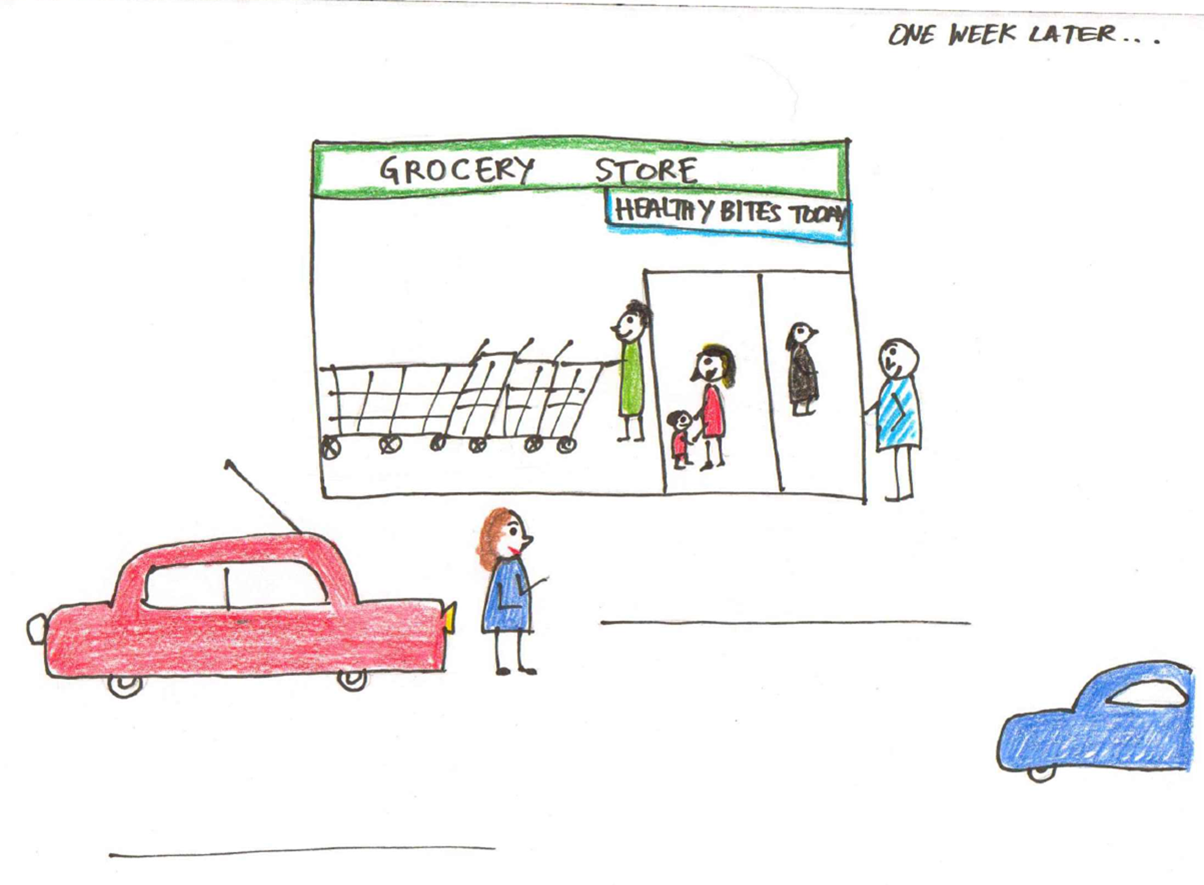 ONE WEEK LATER...
GROCERY STORE
HEALTHY BITES TODAY